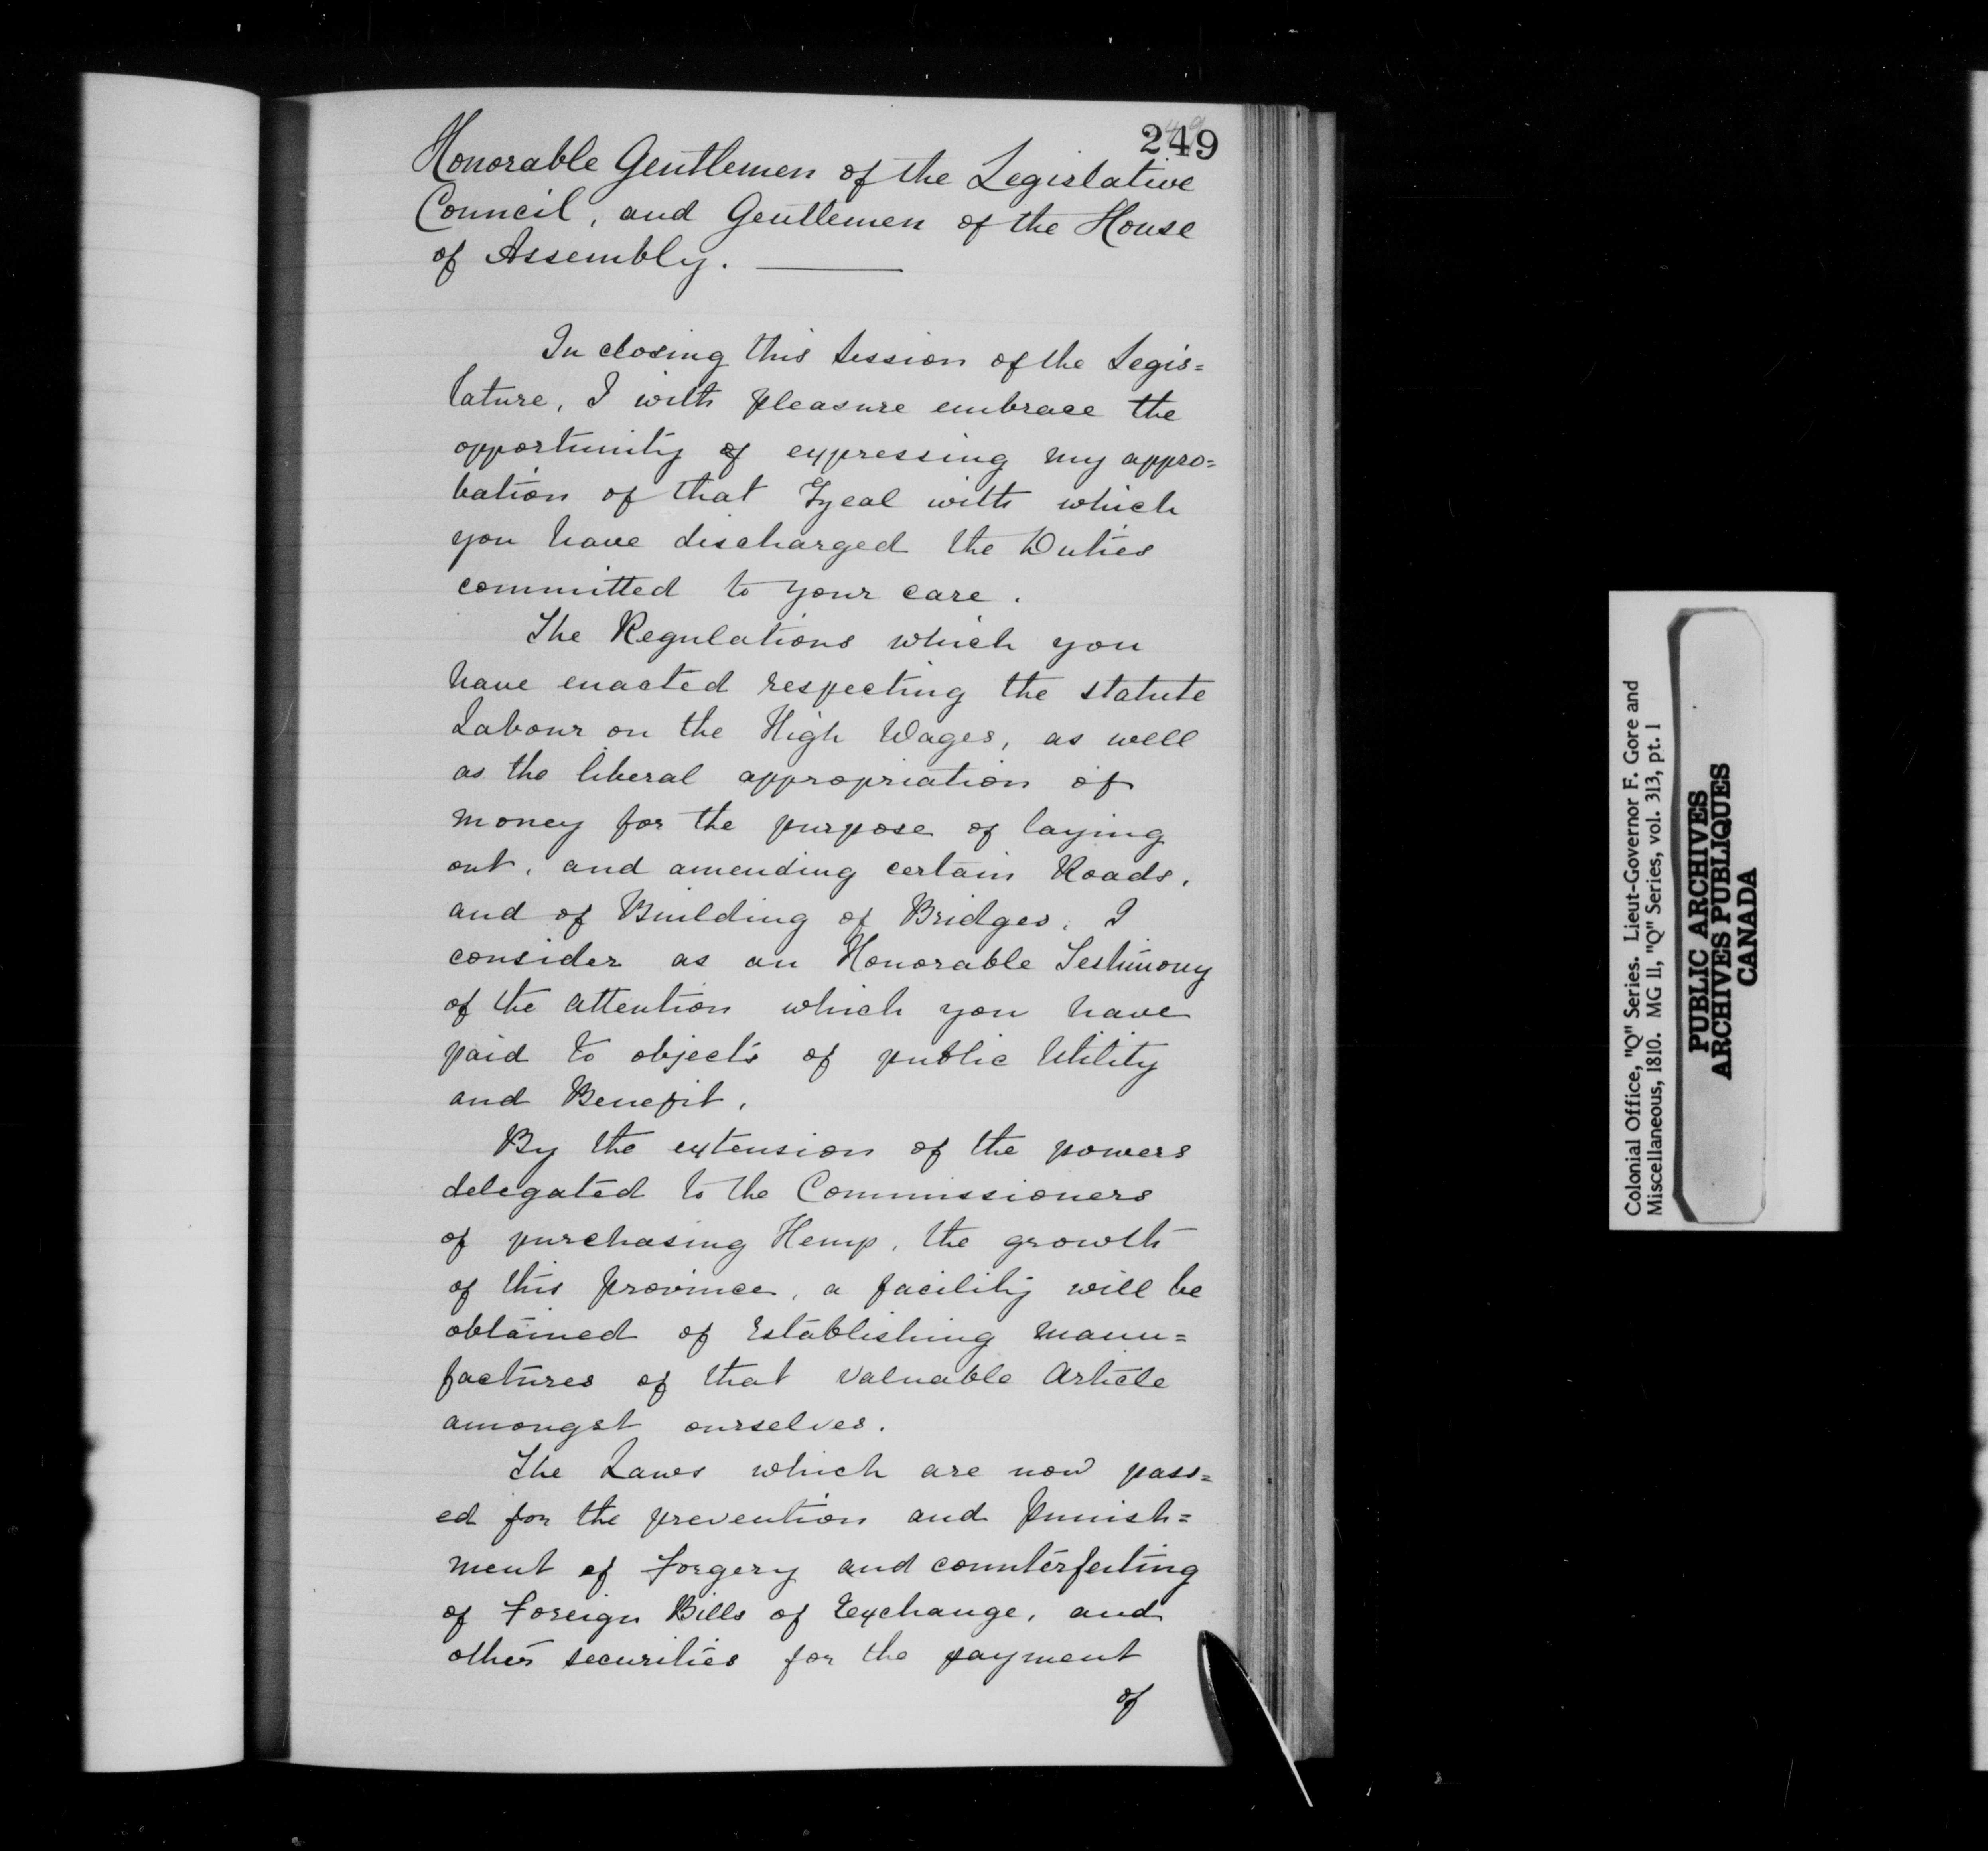 249
Honorable Gentlemen of the Legislative
Council, and Gentlemen of the House
of Assembly.
In closing this Session of the Legis=
lature, I with pleasure embrace the
opportunity of expressing my appro=
bation of that Zeal with which
you have discharged the Duties
committed to your care.
The Regulations which you
have enacted respecting the statute
Labour on the High Wages, as well
as the liberal appropriation of
money for the purpose of laying
out, and amending certain Roads,
and of Building of Bridges, I
consider as an Honorable Testimony
of the attention which you have
paid to objects of public Utility
and Benefit.
By the extension of the powers
delegated to the Commissioners
of purchasing Hemp, the growth
of this province, a facility will be
obtained of Establishing manu=
factures of that valuable Article
amongst ourselves.
The Laws which are now pass=
ed for the prevention and punish=
ment of forgery and counterfeiting
of foreign Bills of Exchange, and
other securities for the payment
of
Colonial Office, "Q" Series. Lieut-Governor F. Gore and
Miscellaneous, 1810. MG 11, "Q" Series, vol. 313, pt. 1
PUBLIC ARCHIVES
ARCHIVES PUBLIQUES
CANADA